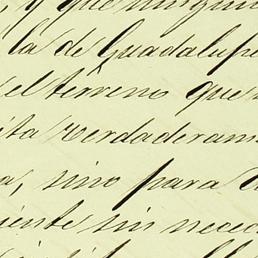 y que ningun
la de Guadalupe
el terreno que
ita verdaderam
a, sino para
iente sin neces